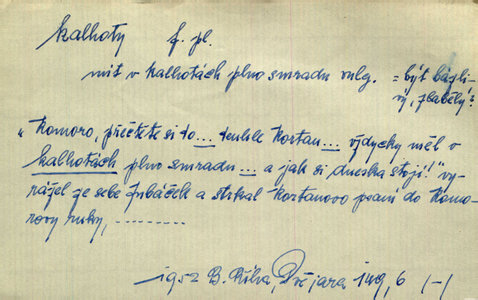 kalhoty f. pl.
mít v kalhotách plno smradu vulg. = být bázli-
vý, zbabělý?
„Komoro, přečtete si to ... tenhle Kostan ... vždycky měl v
kalhotách plno smradu ... a jak si dneska stojí!" vy-
rážel ze sebe Zubáček a strkal Kostanovo psaní do Komo-
rovy ruky, ..........
1952 B. Říha, Dvě jara 149, 6 (-)